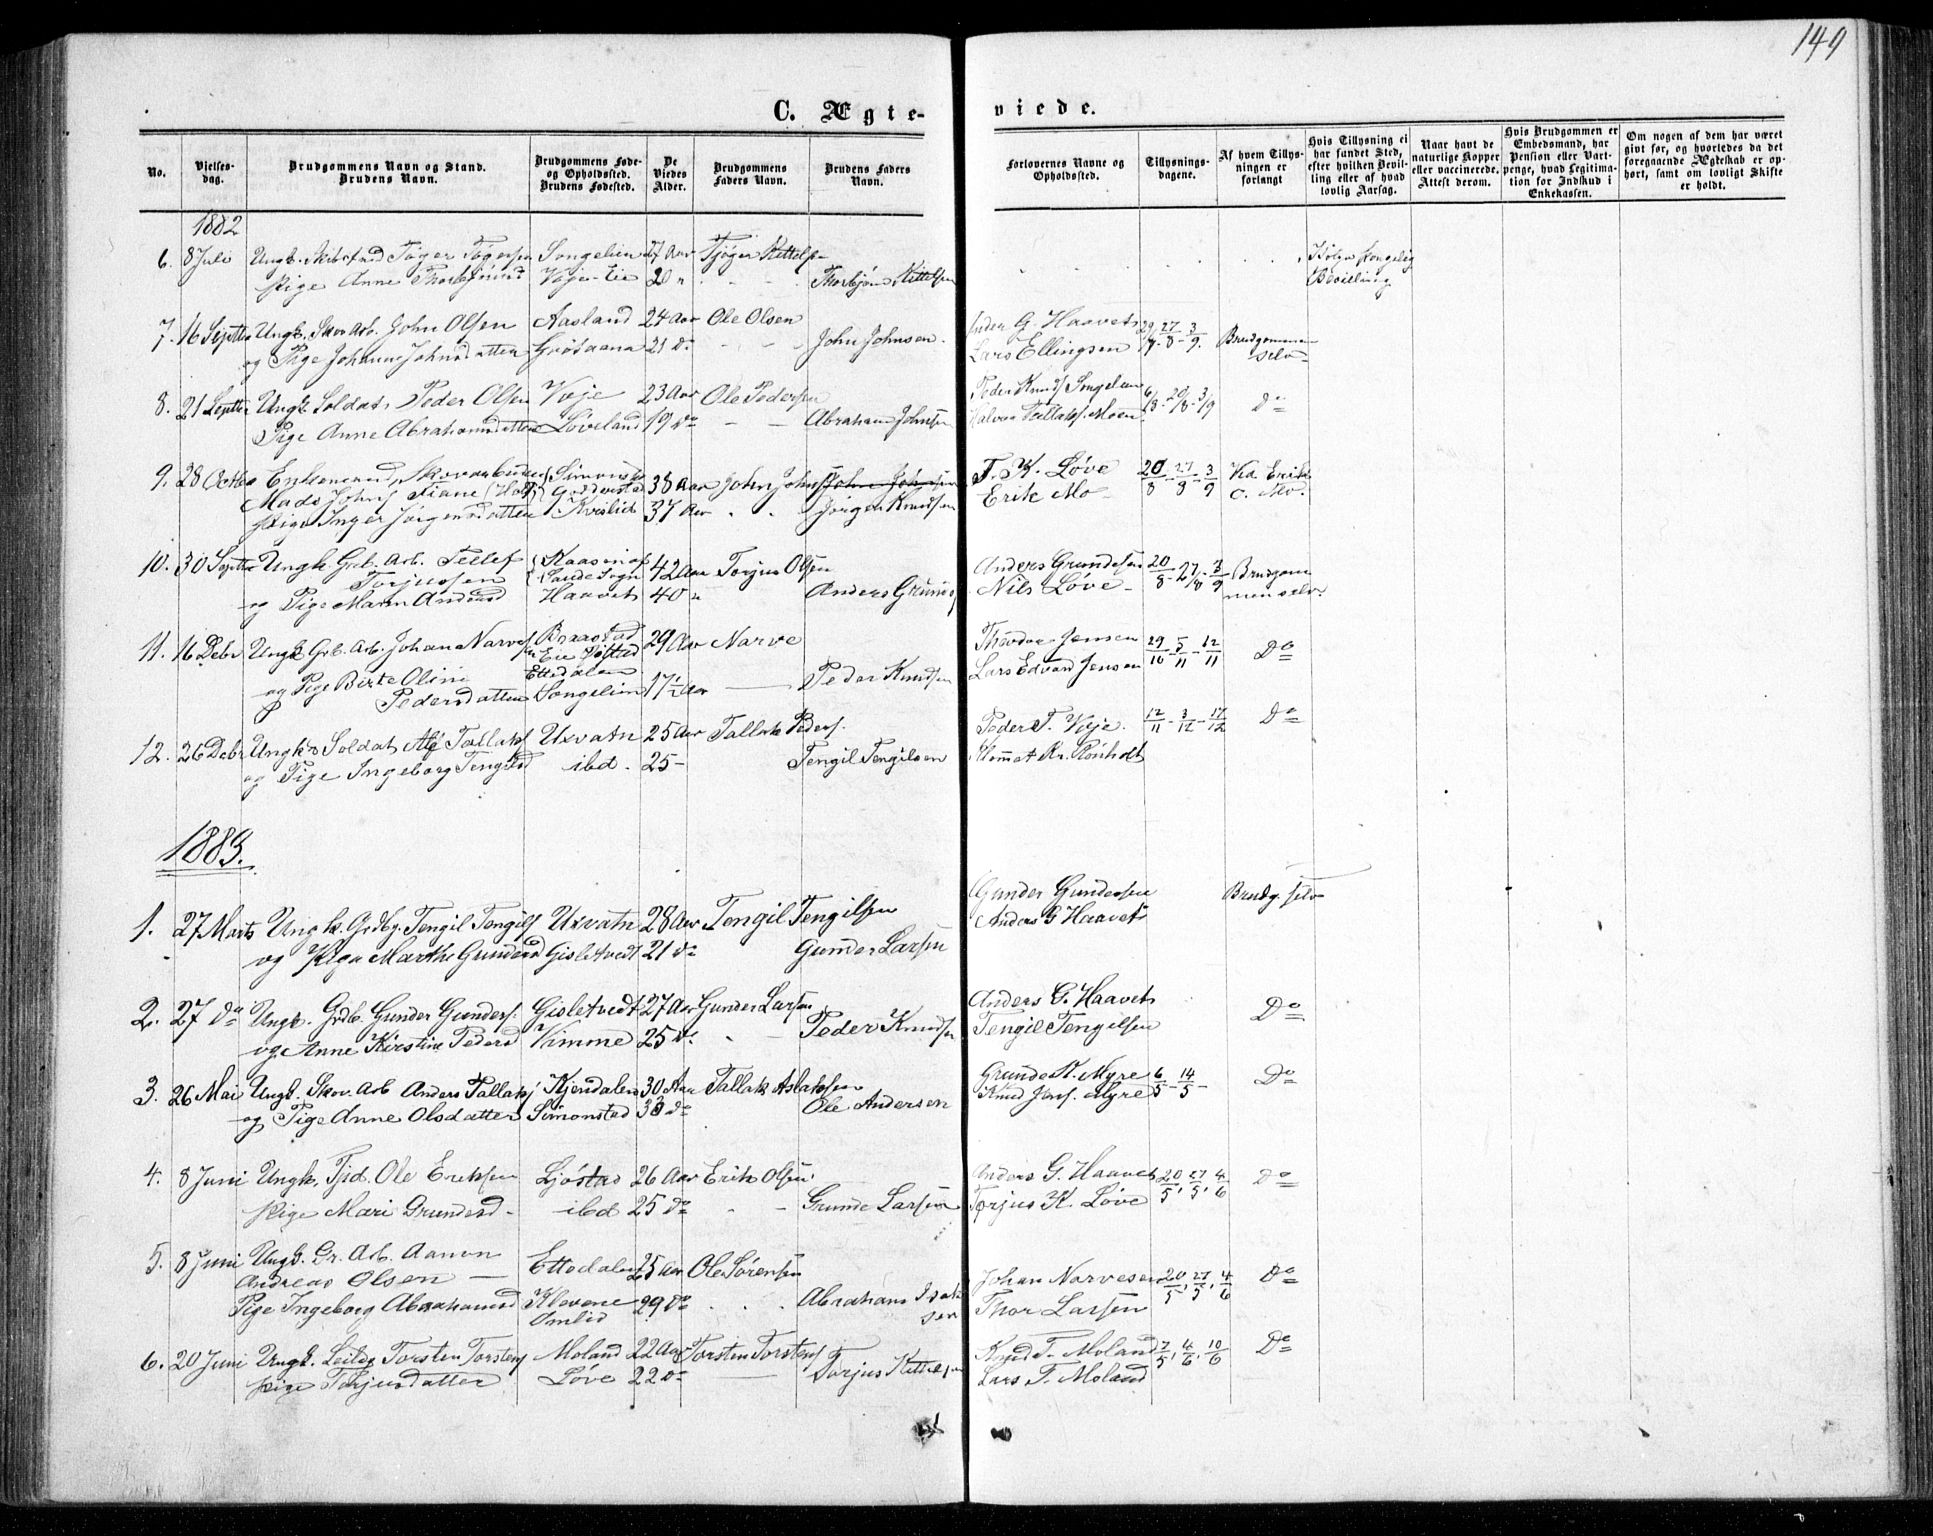 149
C. Ægte-
viede.
No.
Vielses-
dag.
Brudgommens Navn og Stand.
Brudens Navn.
Brudgommens Føde-
og Opholdssted.
Brudens Fødested.
De
Viedes
Alder.
Brudgommens
Faders Navn.
Brudens Faders
Navn.
Forlovernes Navne og
Opholdssted.
Tillysnings-
dagene.
Af hvem Tillys-
ningen er
forlangt
Hvis Tillysning ei
har fundet Sted,
efter hvilken Bevil-
ling eller af hvad
lovlig Aarsag.
Naar havt de
naturlige Kopper
eller vaccinerede.
Attest derom.
Hvis Brudgommen er
Embedsmand, har
Pension eller Vart-
penge, hvad Legitima-
tion for Indskud i
Enkekassen.
Om nogen af dem har været
givt før, og hvorledes da det
foregaaende Ægteskab er op-
hørt, samt om lovligt Skifte
er holdt.
1882
6. 8 Juli Ungk. Tøger Songelien 27 Aar Tjøger Kittels
Pige Anne Veje Eie 20 " Thorbjørn Kittelsen
Kongelig
Bevilling
7. 16 Septbr Ungk. Skov Arb. John Olsen Aasland 24 Aar Ole Olsen
og Pige Johanne Johnsdatter 21 Do John Johnsen
G. Haavet 27/8 - 3/9 Brudgommen
Lars Ellingsen selv
8. 21 Septbr Ungk. Soldat Peder Olsen Veje 23 Aar Ole Pedersen
Pige Anne Abrahamsdatter Løveland 19 Do Abraham Johnsen
Peder Knuds Songelien 6/8 - 20/8 - 3/9 Do
Halvor Moen
9. 28 Octbr Enkemand, Skovarbeider 38 Aar John Johns
Mads Johns Fiane
Pige Inger Jørgensdatter Kveslid 37 Aar Jørgen Knudsen
T. K. Løve 20/8 - 27/8 - 3/9
Erik Mo
10. 30 Septbr Ungk. Grb. Arb. Tellef 42 Aar Torjus Olsen
Torjussen Sande Sogn
og Pige Maren Haavet 40 " Anders
Anders Grundesen 20/8 - 27/8 - 3/9 Brudgom
Nils Løve men selv.
11. 16 Debr Ungk. Grb. Arb. Johan Narves 29 Aar Narve
og Pige Birte Oline Ettedalen
Pedersdatter Songelien 17½ Aar Peder Knudsen
Thevdor Jensen 29/10 - 5/11 - 12/11 Do
Lars Edvard Jensen
12. 26 Debr Ungk. Soldat Alf Tallaks Uxvatn 25 Aar Tallak Peders.
og Pige Ingeborg Tengilsd ibd. 25 - Tengil Tengilsen
Peder T. Veje. 12/11 - 3/12 - 17/12 Do
Kr. Rønholt
1883.
1. 27 Marts Ungk. Grdbg. Tengil Tengils Uxvatn 28 Aar Tengil Tengilsen
og Pige Marthe Gundersd Gisletvedt 21 Do Gunder Larsen
Gunder Gundersen Brudg. selv
Anders G. Haavet
2. 27 Do Ungk. Grdb. Gunder Gunders. Gisletvedt 27 Aar Gunder Larsen
og Anne Kirstine Pedersd Vimme 25 Do Peder Knudsen
Anders G. Haavet Do
Tengil Tengilsen
3. 26 Mai Ungk. Skov. Arb Anders Tallaks Kjendalen 30 Aar Tallak Aslaksen
og Pige Anne Olsdatter Simonstad 33 Do Ole Andersen
Grunde K. Myre 6/5 - 14/5 - Do
Knud Jens. Myre
4. 8 Juni Ungk. Ole Eriksen Ljøstad 26 Aar Erik Olsen
Pige Mari Grundesd - ibd 25 Do Grunde Larsen
Anders G. Haavet 20/5, 27/5, 4/6 Do
Torjus K. Løve
5. 8 Juni Ungk. Gr. Arb. Aanon Ettedalen 25 Aar Ole Sørensen
Andreas Olsen
Pige Ingeborg Abrahamsd Klevene 29 Do Abraham Isak
Omlid sen
Johan Narvesen 20/5, 27/5, 4/6 Do
Thor Larsen
6. 20 Juni Ungk. Torsten Torstens Moland 22 Aar Torsten Torstens
Pige Torjusdatter Løve 22 Do Torjus Kittelsen
Knud T. Moland 7/5, 4/6, 10/6 Do
Lars T. Moland